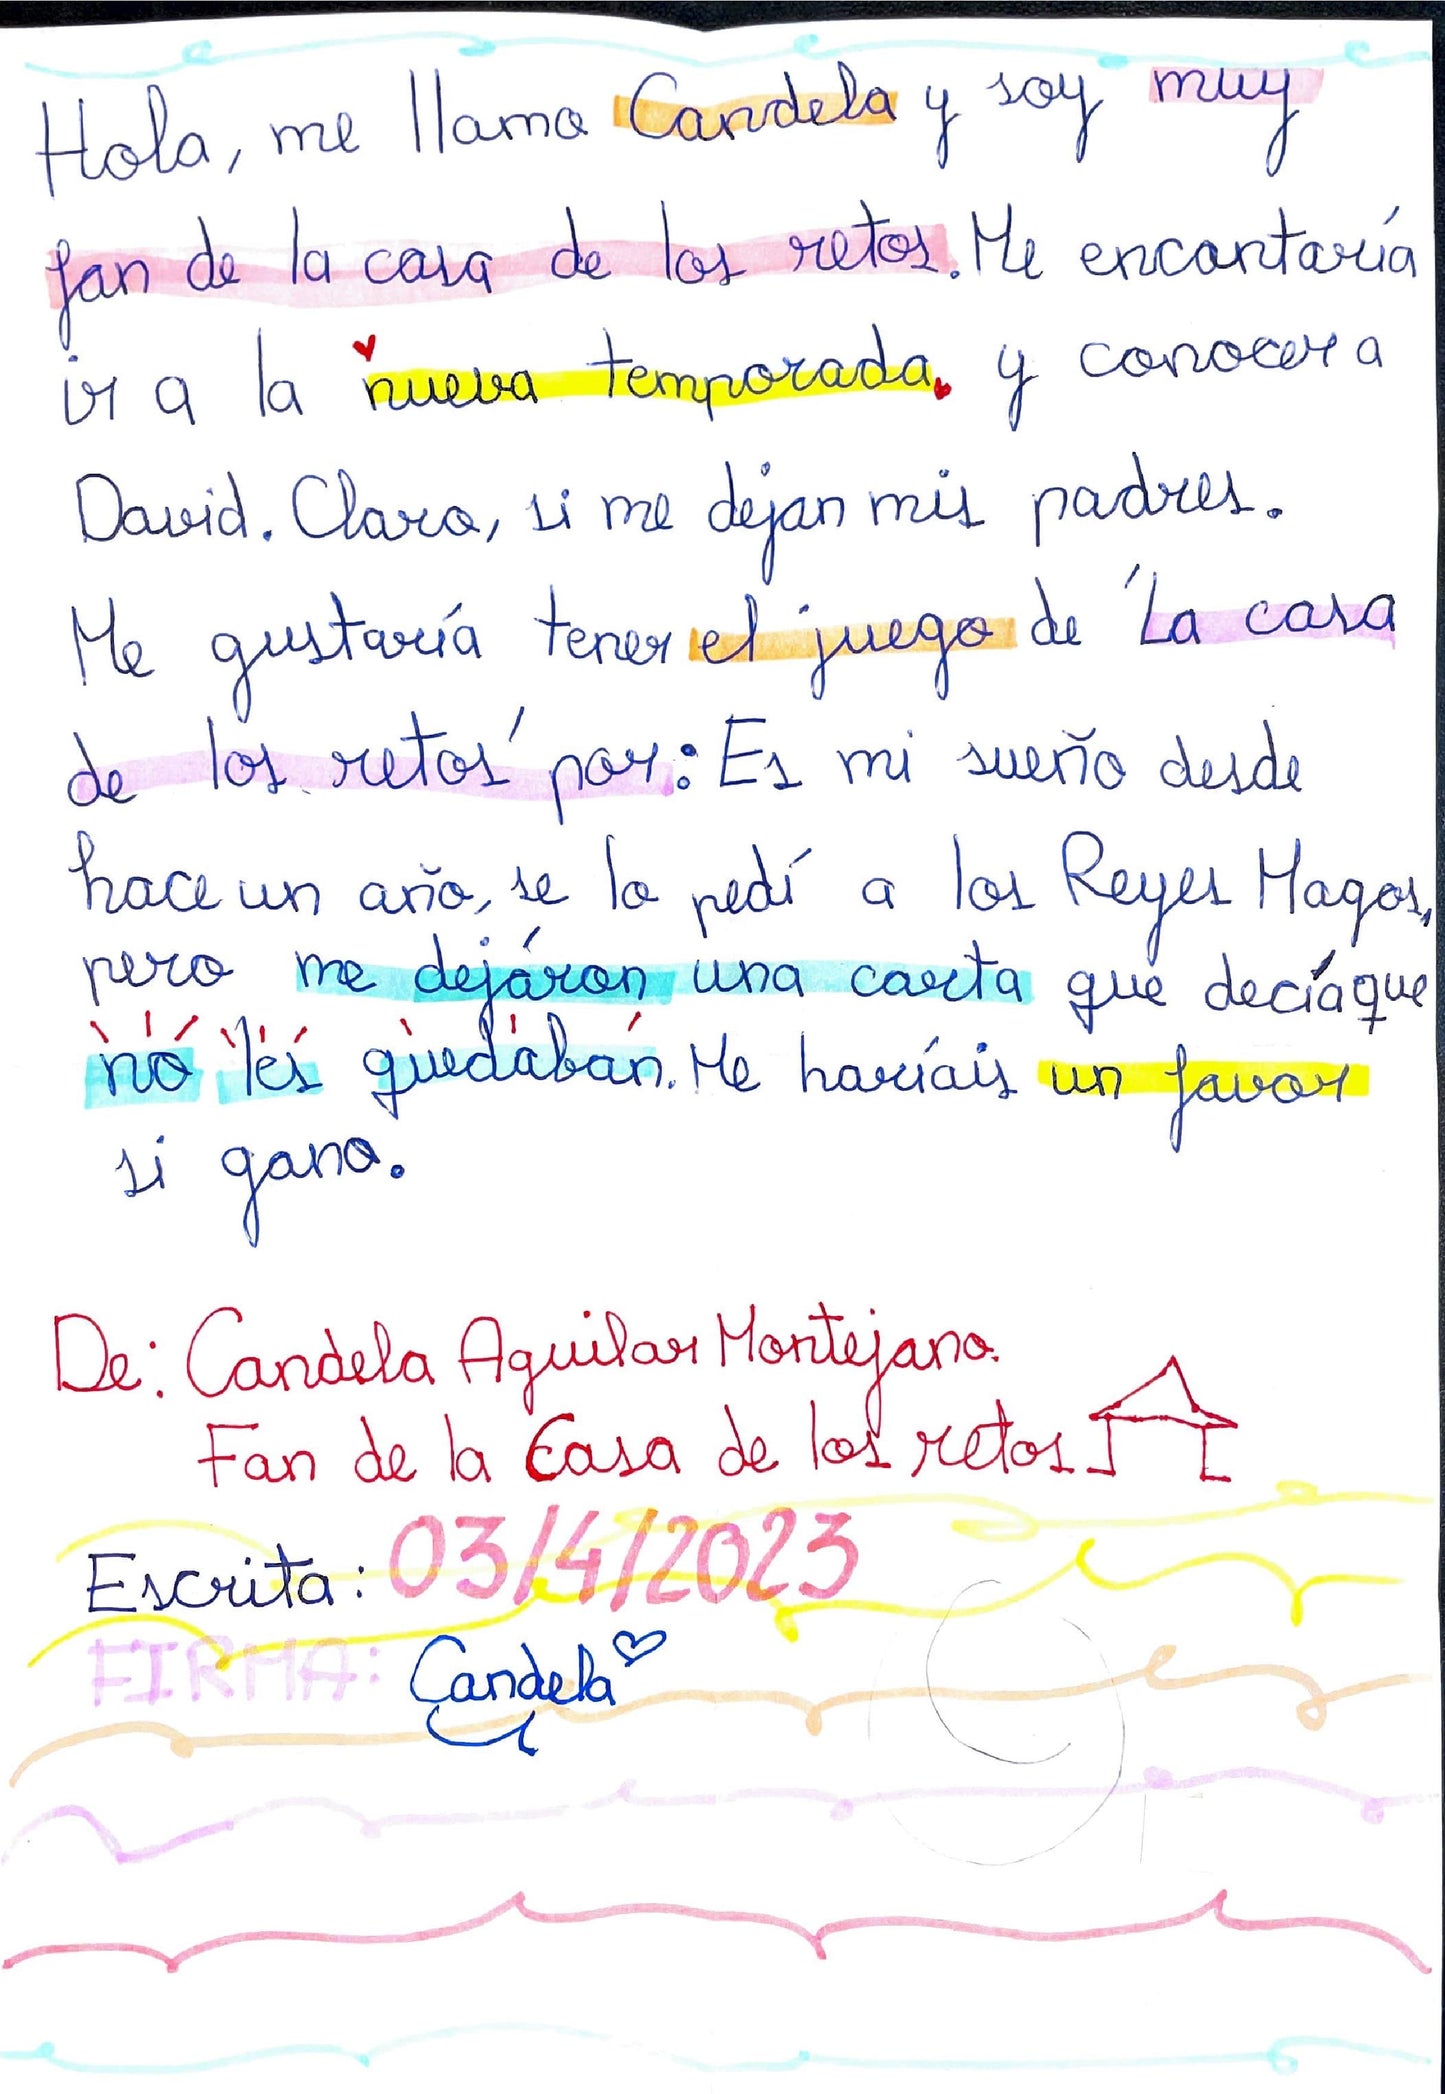 Hola, me llamo Candela y soy muy
fan de la casa de los retos. Me encantaría
ir a la nueva temporada. y conocer a
David. Claro, si me dejan mis padres.
Me gustaría tener el juego de 'La casa
de los retos' por: Es mi sueño desde
hace un año, se lo pedí a los Reyes Magos,
pero me dejáron una carta que decía que
no les quedaban. Me haríais un favor
si gano.
De: Candela Aguilar Montejano.
Fan de la Casa de los retos
Escrita: 03/4/2023
FIRMA: Candela